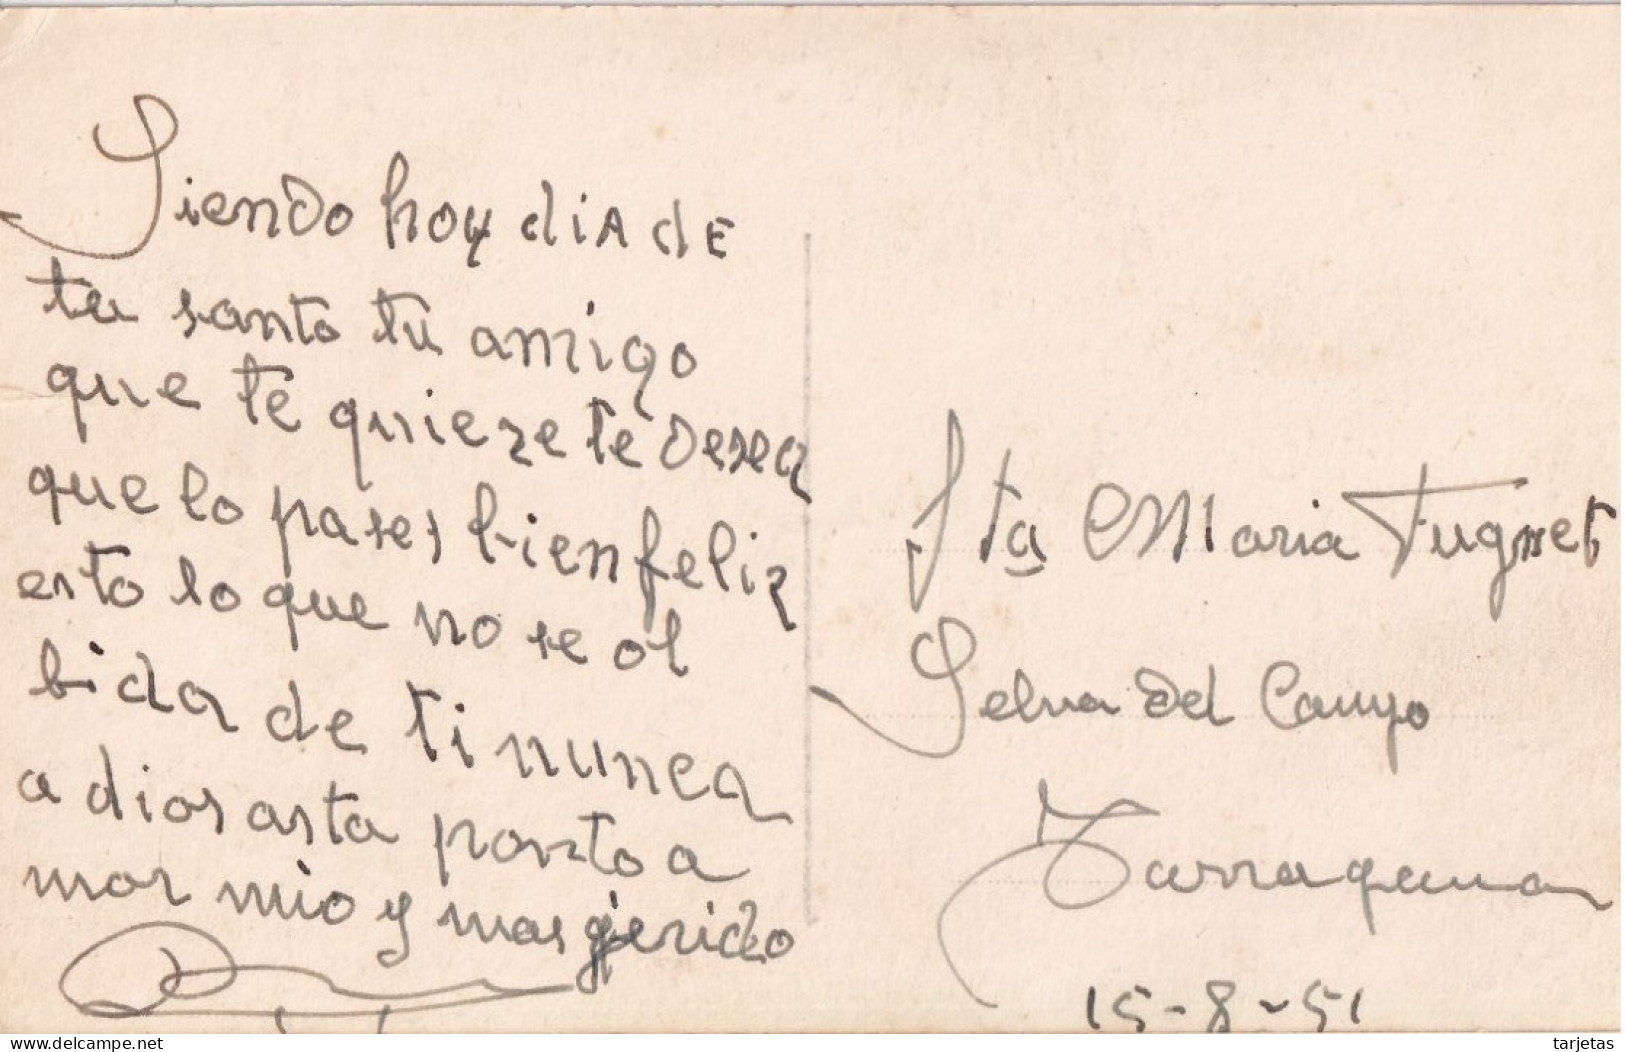 Siendo hoy dia de
tu santo tu amigo
que te quiere te desea
que lo pases bien feliz
esto lo que no se ol
bida de ti nunca
a dios asta ponto a
mor mio y mas qerido
Sta Maria Fugnet
Selva del Campo
Tarragona
15-8-51
www.delcampe.net
tarjetas